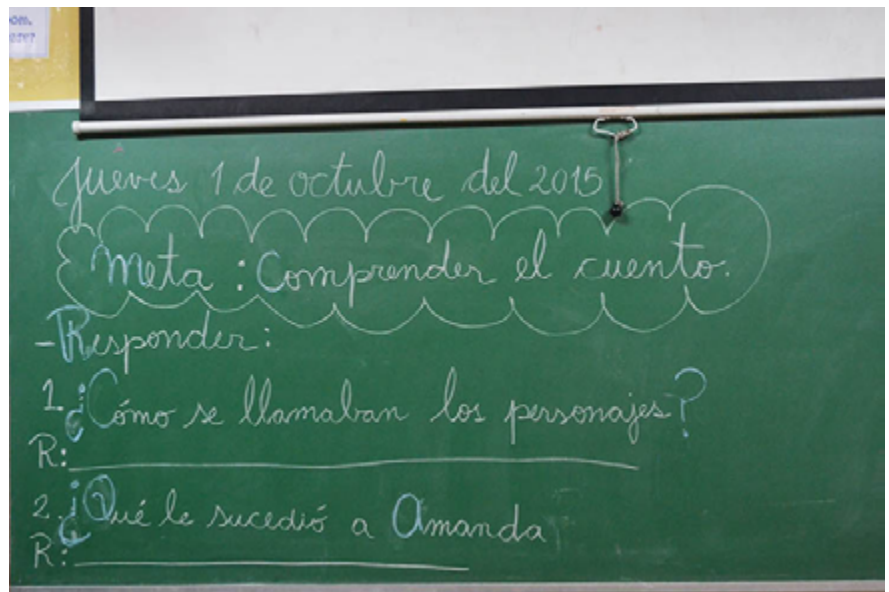 Jueves 1 de octubre del 2015
Meta : Comprender el cuento.
-Responder:
1. ¿Cómo se llamaban los personajes?
R:
2. ¿Qué le sucedió a Amanda
R: